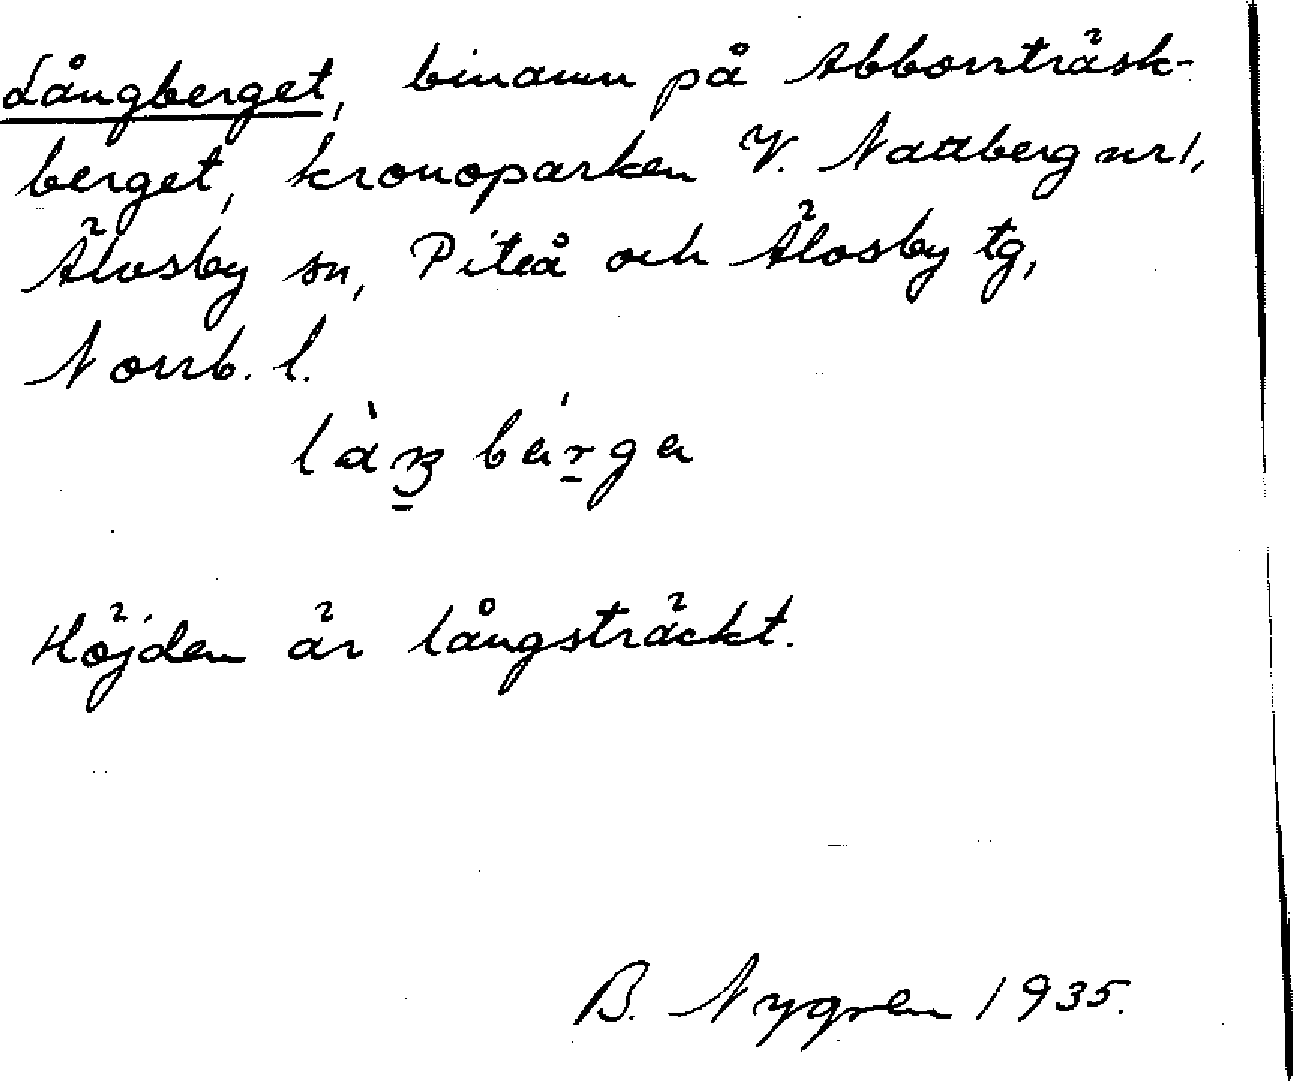 Långberget, binamn på Abborrträsk-
berget, kronoparken V. Nattberg nr 1,
Älvsby sn, Piteå och Älvsby tg,
Norrb. l.
Höjden är långsträckt.
B. Nygren 1935.